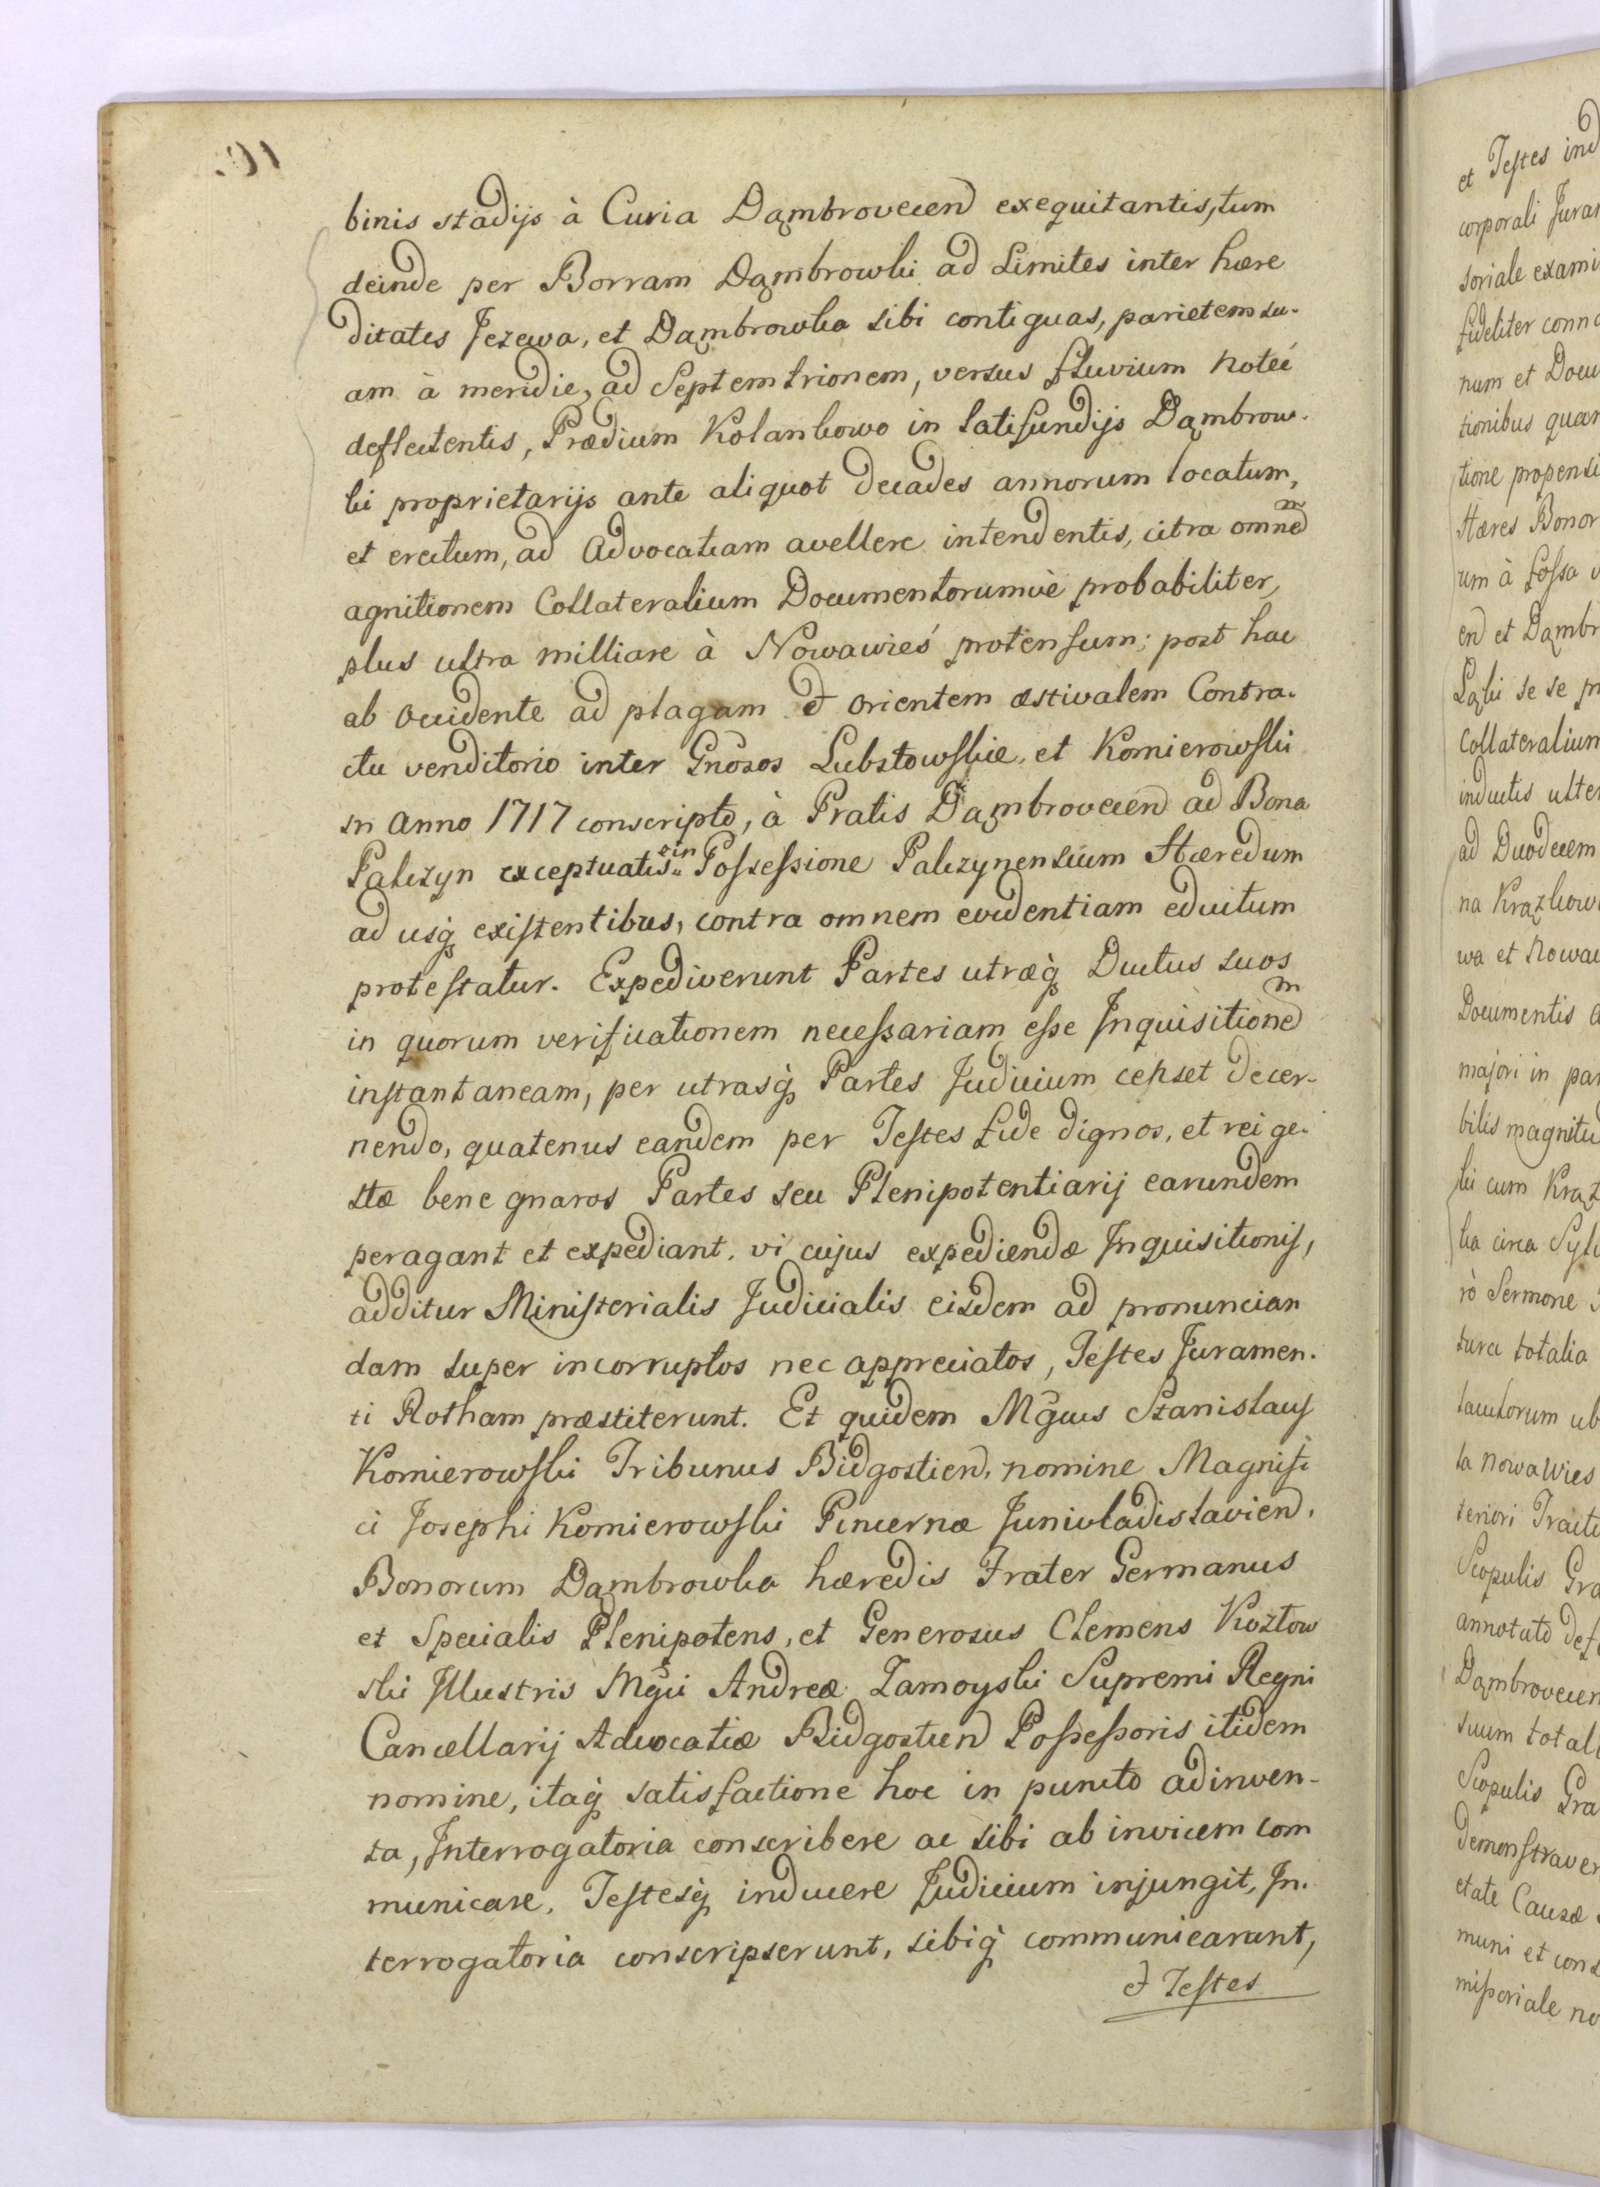 binis stadijs à Curia Dąmbrovecen exequitantis, tum
deinde per Borram Dąmbrowki ad Limites inter hære
ditates Jezewa, et Dąmbrowka sibi contiguas, parietem su-
am à meridie, ad Septemtrionem, versus fluvium Noteć
deflectentis, Prædium Kolankowo in latifundijs Dąmbrow-
ki proprietarijs ante aliquot decades annorum locatum,
et erectum, ad Advocatiam avellere intendentis, citra omnem
agnitionem Collateralium Documentorumvè probabiliter,
plus ultra milliare à Nowawieś protensum; post hac
ab Occidente ad plagam et Orientem æstivalem Contra-
ctu venditorio inter Gnosos Lubstowskie, et Komierowski
in Anno 1717 conscripto, à Pratis Dąmbrovecen ad Bona
Palczyn exceptuatis ein Possessione Palczynensium Hæredum
ad usq existentibus, contra omnem evidentiam eductum
protestatur. Expediverunt Partes utræq Ductus suos
in quorum verificationem necessariam esse Inquisitionem
instantaneam, per utrasq Partes Judicium censet decer-
nendo, quatenus eandem per Testes fide dignos, et rei ge-
stæ bene gnaros Partes seu Plenipotentiarij earundem
peragant et expediant. vi cujus expediendæ Inquisitionis,
additur Ministerialis Judicialis eisdem ad pronuncian
dam super incorruptos nec appreciatos, Testes Juramen-
ti Rotham præstiterunt. Et quidem Mgcus Stanislaus
Komierowski Tribunus Bidgostien, nomine Magnifi
ci Josephi Komierowski Pincernæ Junivladislavien.
Bonorum Dąmbrowka hæredis Frater Germanus
et Specialis Plenipotens, et Generosus Clemens Kozłow
ski Illustris Mgci Andreæ Zamoyski Supremi Regni
Cancellarij Advocatiæ Bidgostien Possessoris itidem
nomine, itaq satisfactione hoc in puncto adinven-
ta, Interrogatoria conscribere ac sibi ab invicem com
municare, Testesq inducere Judicium injungit, In-
terrogatoria conscripserunt, sibiq communicarunt,
et Testes
et Testes ind
corporali Jura
soriale exami
fideliter conno
num et Docu
tionibus quar
tione propensi
Hæres Bonor
um à Fossa v
en et Dambr
Ląki se se pr
Collateralium
inductis ulte
ad Duodecem
na Krązkow
wa et Nowa
Documentis a
majori in par
bilis magnitu
ki cum Krąz
ka circa Sylv
rò Sermone
tura totalia
tauctorum ub
ta Nowawies
teriori Tractu
Scopulis Gra
annotato defl
Dąmbrovecen
suum total
Scopulis Gra
demonstraver
etate Causæ
muni et cons
missoriale no